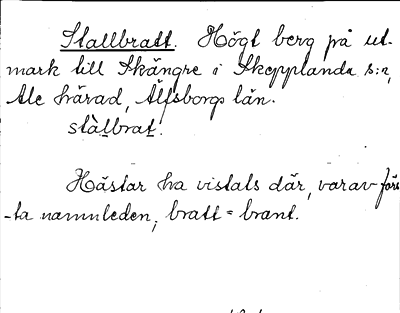 Stallbratt. Högt berg på ut-
mark till Skängre i Skepplanda s:n,
Ale härad, Älfsborgs län.
stàlbrat.
Hästar ha vistats där, varav förs
-ta namnleden; bratt = brant.